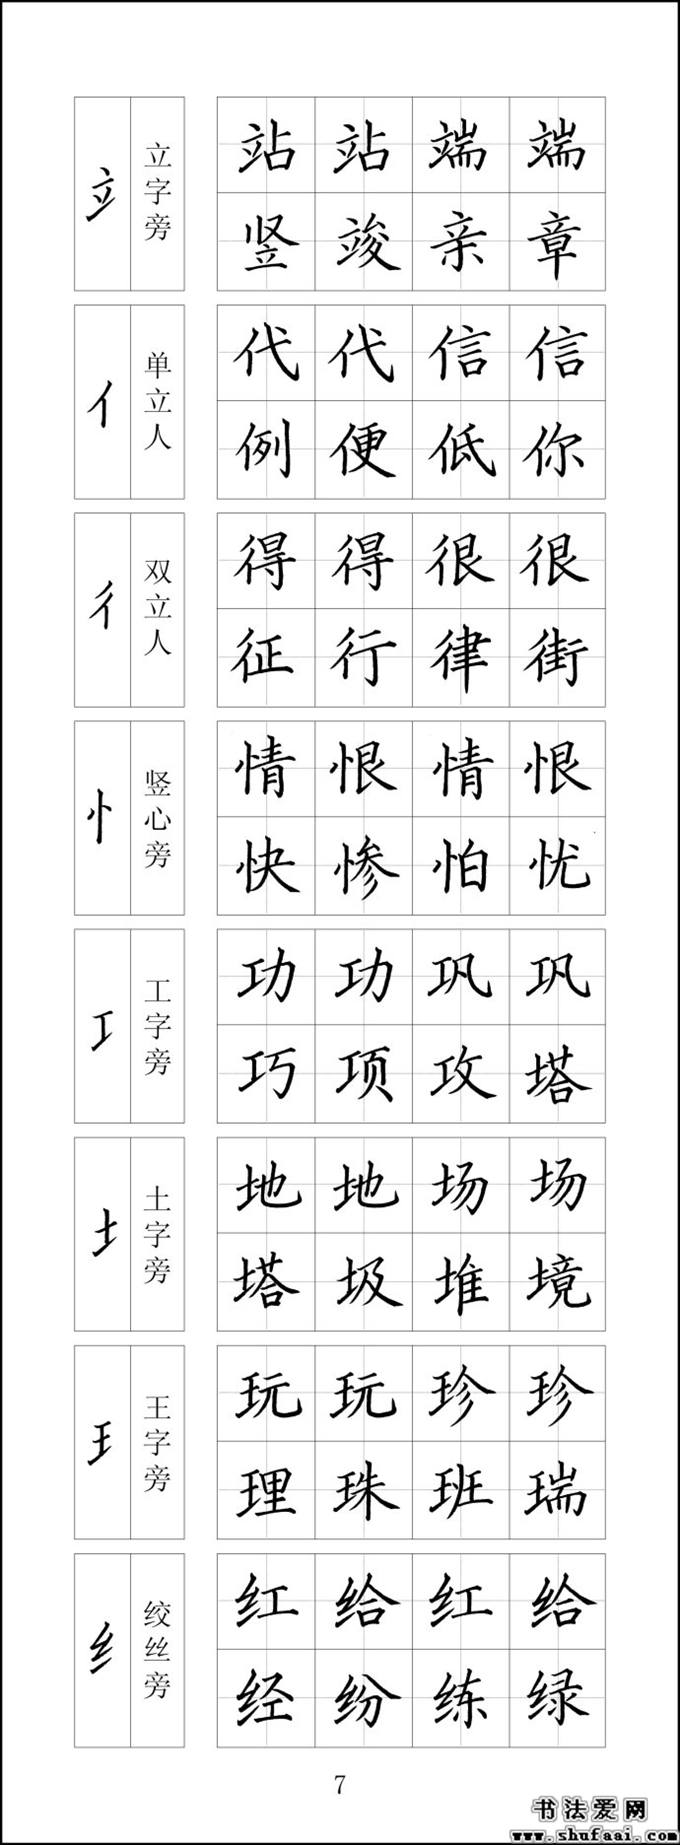 立字旁
站站端端
竖竣亲章
亻
单立人
代代信信
例便低你
彳
双立人
得得很很
征行律街
忄
竖心旁
情恨情恨
快惨怕忧
工
工字旁
功功巩巩
巧项攻塔
土
土字旁
地地场场
塔圾堆境
王
王字旁
玩玩珍珍
理珠班瑞
纟
绞丝旁
红给红给
经纷练绿
7
书法爱网
www.shufaai.com